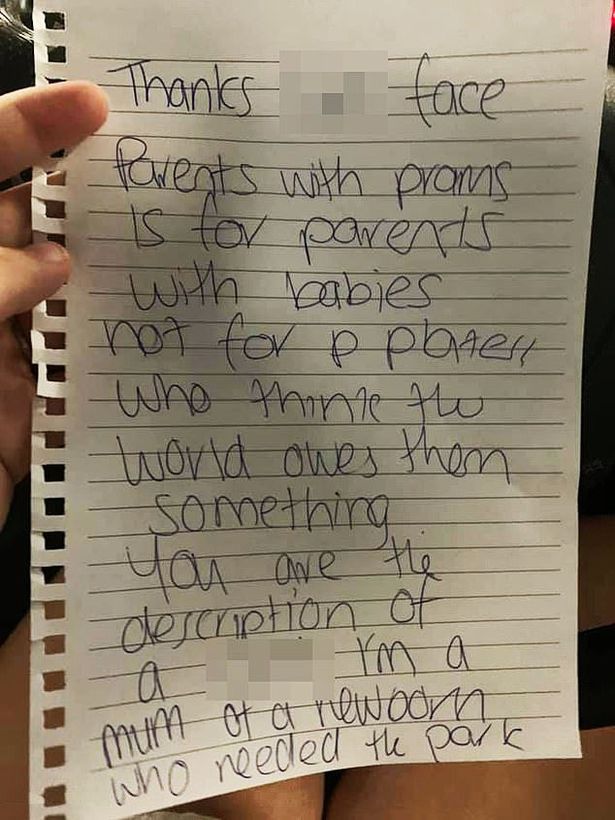 Thanks face
Parents with prams
is for parents
with babies
not for p plates
who think the
world owes them
something
You are the
description of
a I'm a
mum of a newborn
who needed the park